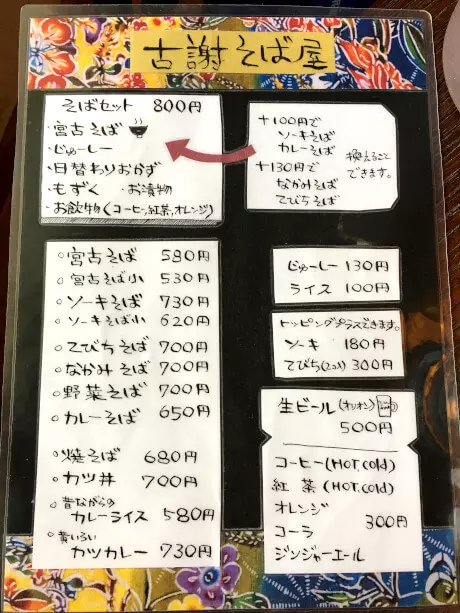 古謝そば屋
そばセット 800円
・宮古そば
・じゅーしー
・日替わりおかず
・もずく ・お漬物
・お飲物(コーヒー,紅茶,オレンジ)
+100円で
ソーキそば
カレーそば
+130円で
なかみそば
てびちそば
換えること
できます。
宮古そば 580円
宮古そば小 530円
ソーキそば 730円
ソーキそば小 620円
てびちそば 700円
なかみそば 700円
野菜そば 700円
カレーそば 650円
焼そば 680円
カツ丼 700円
昔ながらの
カレーライス 580円
黄いろい
カツカレー 730円
じゅーしー 130円
ライス 100円
トッピングプラスできます。
ソーキ 180円
てびち(2コ入) 300円
生ビール(オリオン)
500円
コーヒー(HOT,cold)
紅茶(HOT,cold)
オレンジ
コーラ 300円
ジンジャーエール